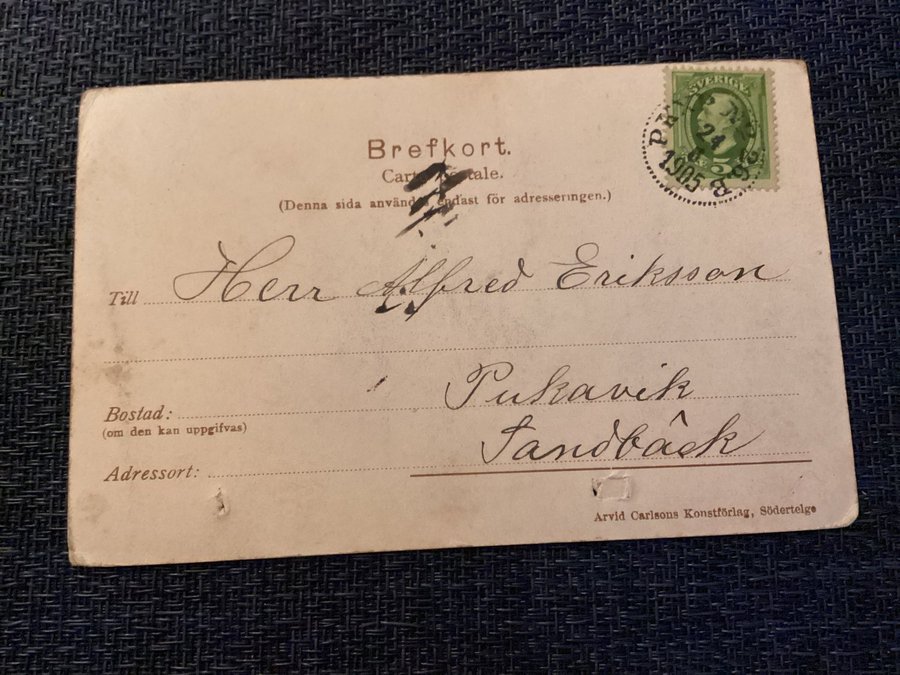 Brefkort.
Carte Postale.
(Denna sida användes endast för adresseringen.)
SVERIGE
24
1905
Till Herr Alfred Eriksson
Pukavik
Bostad:
(om den kan uppgifvas)
Sandbäck
Adressort:
Arvid Carlsons Konstförlag, Södertelge